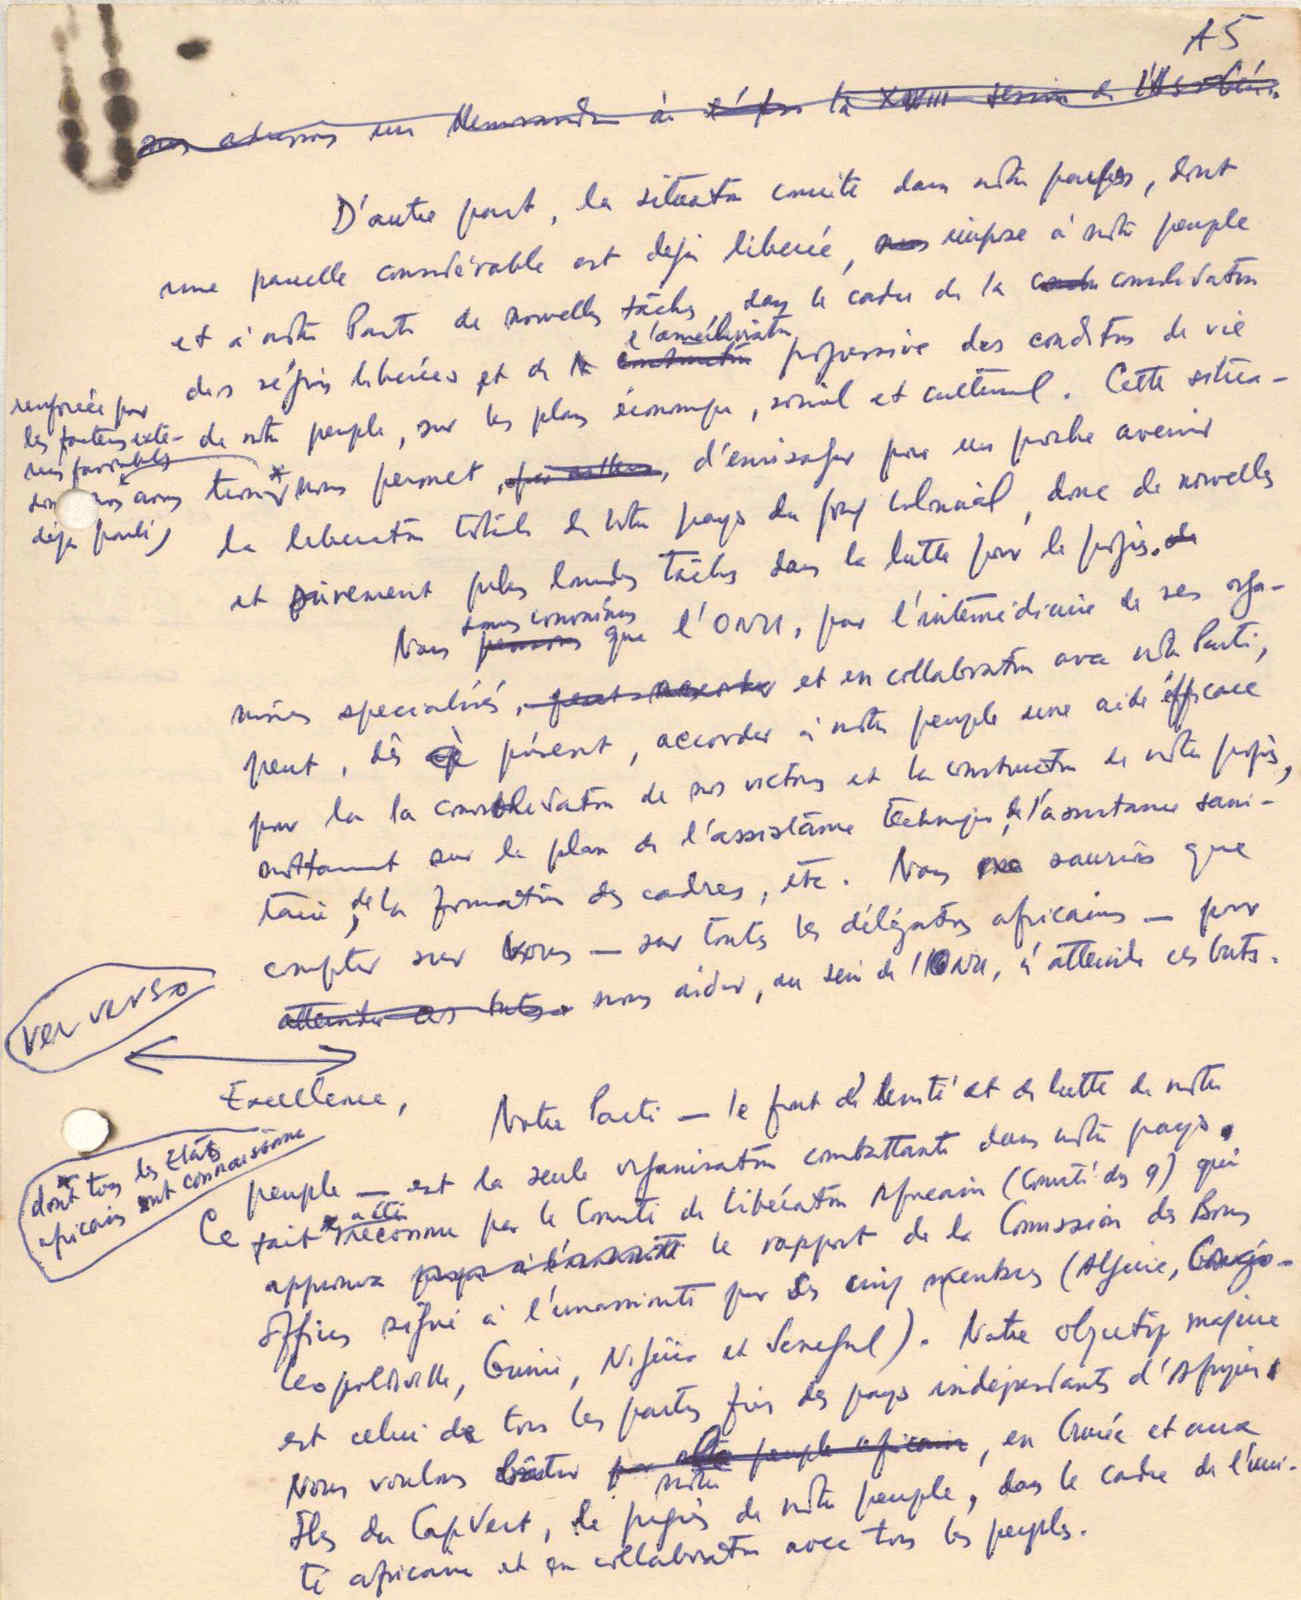 A5
adressé un Memorandum à la XVIII session de l'Ass. Gén.
D'autre part, la situation concrète dans notre pays, dont
une parcelle considérable est déjà liberée, impose à notre peuple
et à notre Parti de nouvelles tâches, dans le cadre de la consolidation
l'amélioration
des régions liberées et de progressive des conditions de vie
de notre peuple, sur les plans économique, social et culturel. Cette situa-
tion* nous permet, par ailleurs, d'envisager pour un proche avenir
renforcée par
les facteurs exté-
rieurs favorables
dont nous avons
déjà parlé,
la liberation totale de notre pays du joug colonial, donc de nouvelles
et sûrement plus lourdes tâches dans la lutte pour le progrès.
sommes convaincus
Nous pensons que l'ONU, par l'intermédiaire de ses orga-
nismes specialisés, et en collaboration avec notre Parti,
peut, dès à présent, accorder à notre peuple une aide éfficace
pour la la consolidation de nos victoires et la construction de notre progrès,
notamment sur le plan de l'assistance technique, de l'assistance sani-
taire, de la formation des cadres, etc. Nous saurions que
compter sur vous — sur toutes les délégations africaines — pour
atteindre ces buts. nous aider, au sein de l'ONU, à atteindre ces buts.
ver verso
Excellence,
Notre Parti — le front de l'unité et de lutte de notre
peuple — est la seule organisation combattante dans notre pays.
* dont tous les Etats
africains ont connaissance
Ce fait* reconnu par le Comité de Libération Africain (Comité des 9) qui
approuva à l'unanimité le rapport de la Comission des Bons
Offices signé à l'unanimité par les cinq membres (Algérie, Congo-
Leopoldville, Guinée, Nigéria et Senegal). Notre objectif majeur
est celui de tous les partis fiers des pays indépendants d'Afrique.
Nous voulons bâtir peuple africain, en Guinée et aux
notre
Iles du Cap Vert, le progrès de notre peuple, dans le cadre de l'uni-
té africaine et en collaboration avec tous les peuples.